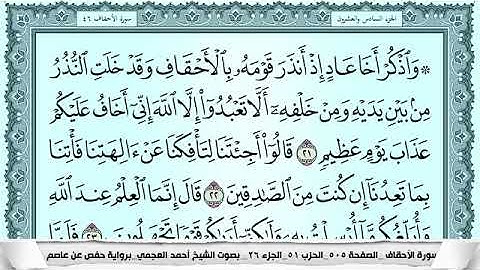 الجزء السادس والعشرون سورة الأحقاف ٤٦
۞ وَاذْكُرْ أَخَا عَادٍ إِذْ أَنذَرَ قَوْمَهُ بِالْأَحْقَافِ وَقَدْ خَلَتِ النُّذُرُ
مِن بَيْنِ يَدَيْهِ وَمِنْ خَلْفِهِ أَلَّا تَعْبُدُوا إِلَّا اللَّهَ إِنِّي أَخَافُ عَلَيْكُمْ
عَذَابَ يَوْمٍ عَظِيمٍ ٢١ قَالُوا أَجِئْتَنَا لِتَأْفِكَنَا عَنْ آلِهَتِنَا فَأْتِنَا
بِمَا تَعِدُنَا إِن كُنتَ مِنَ الصَّادِقِينَ ٢٢ قَالَ إِنَّمَا الْعِلْمُ عِندَ اللَّهِ
وَأُبَلِّغُكُم مَّا أُرْسِلْتُ بِهِ وَلَٰكِنِّي أَرَاكُمْ قَوْمًا تَجْهَلُونَ ٢٣ فَلَمَّا
سورة الأحقاف_الصفحة ٥٠٥_الحزب ٥١_الجزء ٢٦_بصوت الشيخ أحمد العجمي_برواية حفص عن عاصم